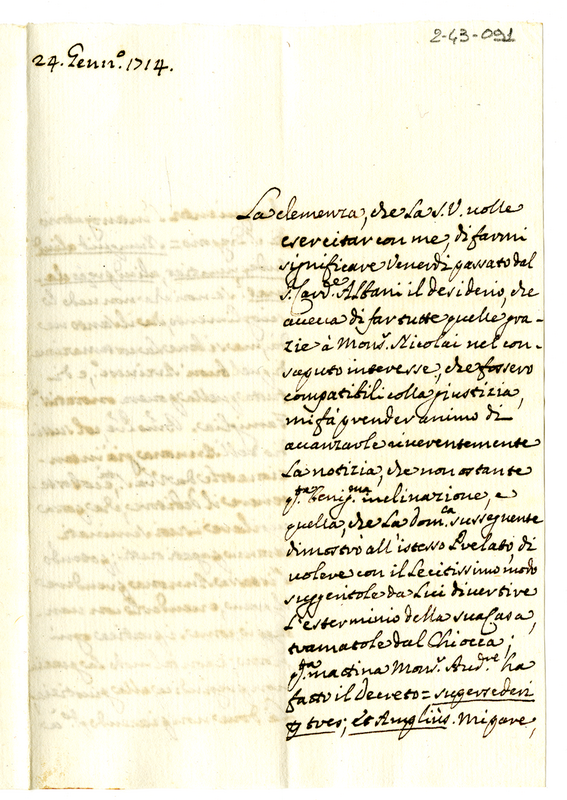 2-43-091
24. Genn.o 1714.
La clemenza, che La S. V. volle
esercitar con me, di farmi
significare Venerdì passato dal
S. Card.e Albani il desiderio, che
aveva di far tutte quelle gra-
zie à Mons.r Nicolai nel con-
saputo interesse, che fossero
compatibili colla giustizia,
mi fà prender animo di
avanzarle riverentemente
La notizia, che non ostante
q.ta benig.ma inclinazione, e
quella, che La dom.ca susseguente
dimostrò all'istesso Prelato, di
volere con il Lecitissimo modo
suggeritole da Lui divertire
L'esterminio della sua Casa,
tramatole dal Chiocca;
q.ta mattina Mons.r Aud.re ha
fatto il Decreto = supersederi
p tres; et Amplius. Mi pare,